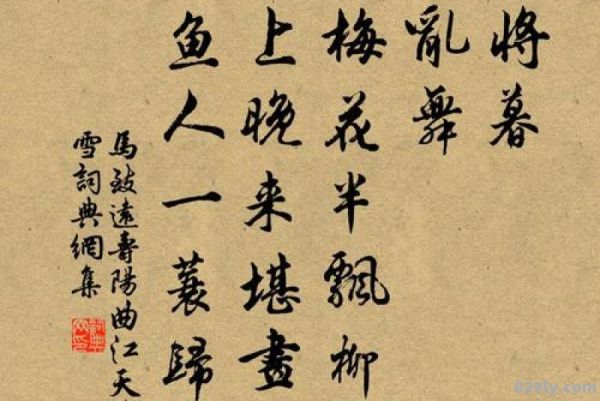 将暮
亂舞
梅花半飄柳
上晚来堪畫
鱼人一蓑歸
馬致遠壽陽曲江天
雪詞典網集
詞典網印
029ly.com